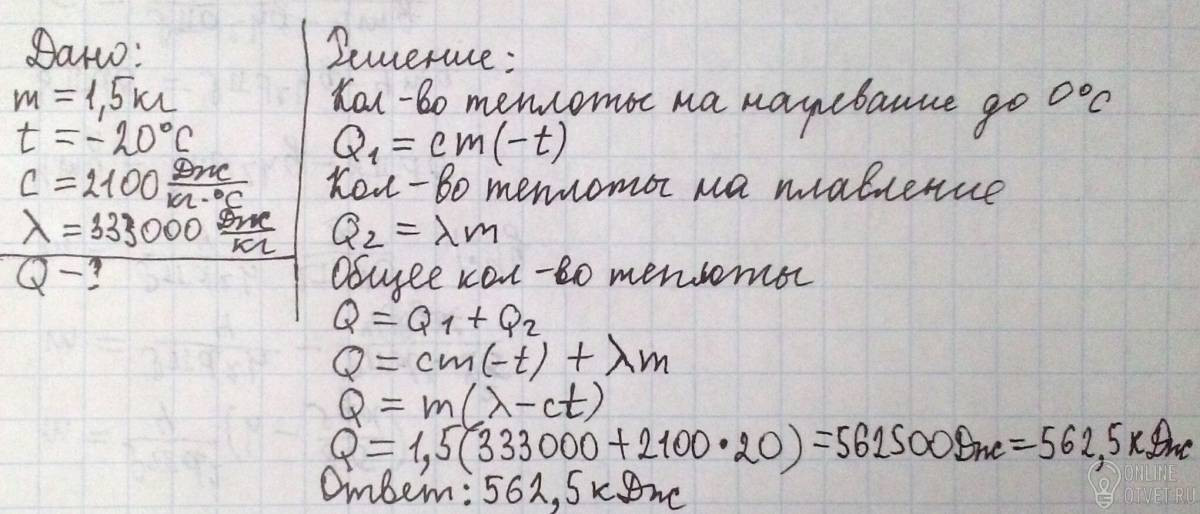 Дано:
m = 1,5 кг
t = -20°C
c = 2100 Дж/кг·°C
λ = 333000 Дж/кг
Q - ?
Решение:
Кол-во теплоты на нагревание до 0°C
Q₁ = cm(-t)
Кол-во теплоты на плавление
Q₂ = λm
Общее кол-во теплоты
Q = Q₁ + Q₂
Q = cm(-t) + λm
Q = m(λ - ct)
Q = 1,5(333000 + 2100 · 20) = 562500 Дж = 562,5 кДж
Ответ: 562,5 кДж
ONLINE
OTVET.RU